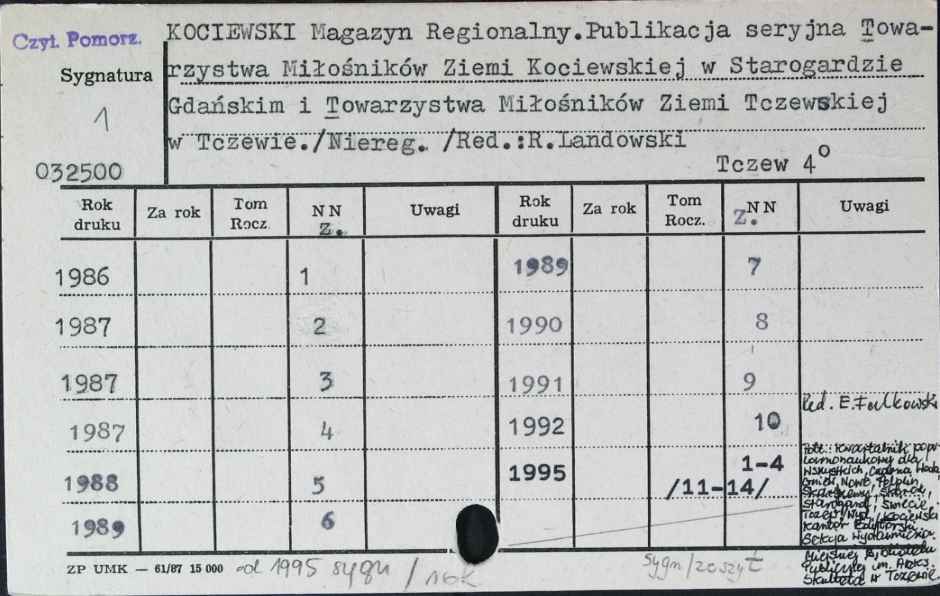 Czyt. Pomorz.
KOCIEWSKI Magazyn Regionalny.Publikacja seryjna Towa-
Sygnatura
rzystwa Miłośników Ziemi Kociewskiej w Starogardzie
1
Gdańskim i Towarzystwa Miłośników Ziemi Tczewskiej
w Tczewie./Niereg. /Red.:R.Landowski
032500
Tczew 4o
Rok druku Za rok Tom Rocz. NN Z. Uwagi Rok druku Za rok Tom Rocz. NN Z. Uwagi
1986 1 1989 7
1987 2 1990 8
1987 3 1991 9
Red. E. Falkowski
1987 4 1992 10
1988 5 1995 1-4
/11-14/
1989 6
Kwartalnik popu
larnonaukowy dla
wszystkich,
Nowe, Pelplin,
Skarszewy, Skórcz,
Starogard, Świecie,
Tczew/Wyd. Kociewski
Kantor Edytorski.
Sekcja Wydawnicza
Miejskiej Biblioteki
Publicznej im. Aleks.
Skulteta w Tczewie
ZP UMK — 61/87 15 000
od 1995 sygn / rok
sygn/zeszyt